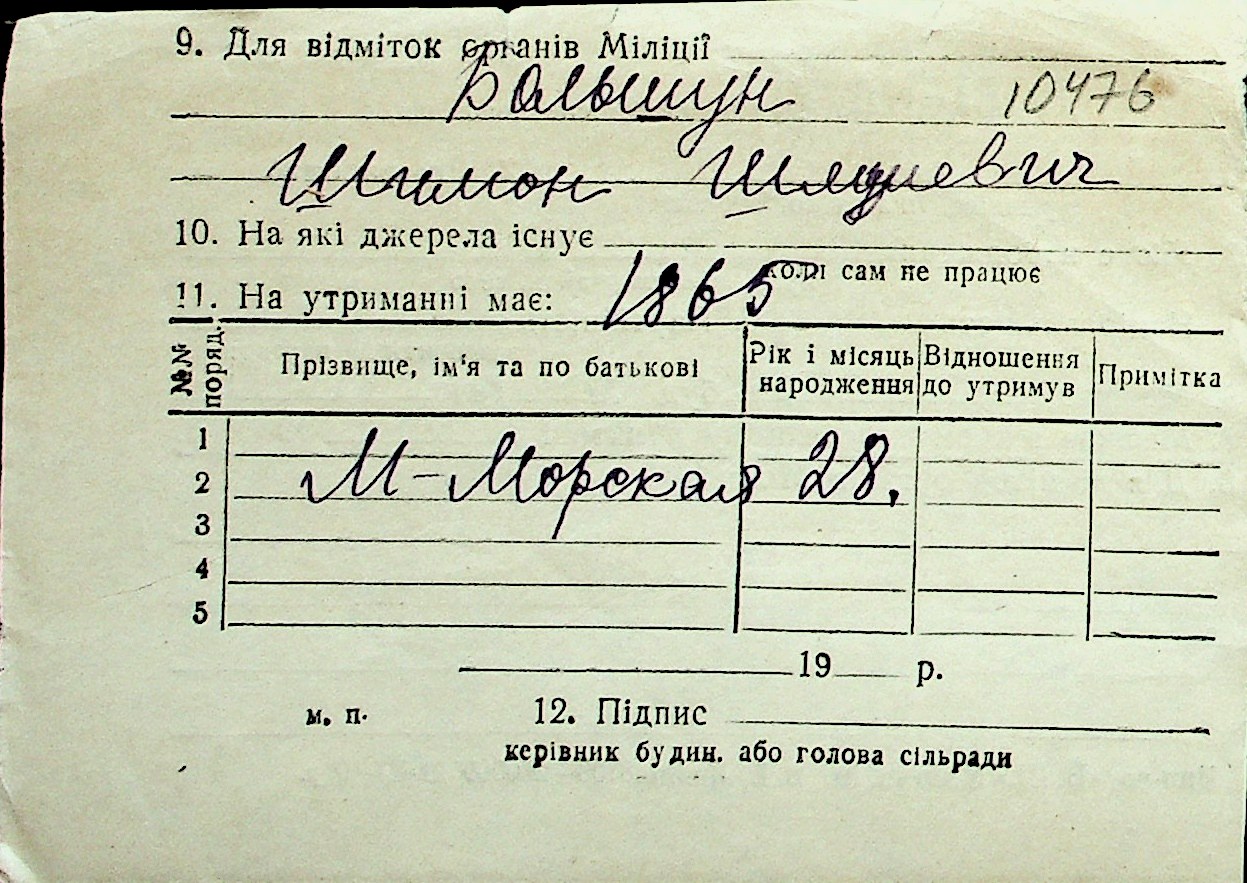 9. Для відміток органів Міліції
Большун 10476
Шимон
10. На які джерела існує
коли сам не працює
11. На утриманні має: 1865
№№ поряд. Прізвище, ім'я та по батькові Рік і місяць народження Відношення до утримув Примітка
1
2 М-Морская 28.
3
4
5
19 р.
м. п. 12. Підпис
керівник будин. або голова сільради